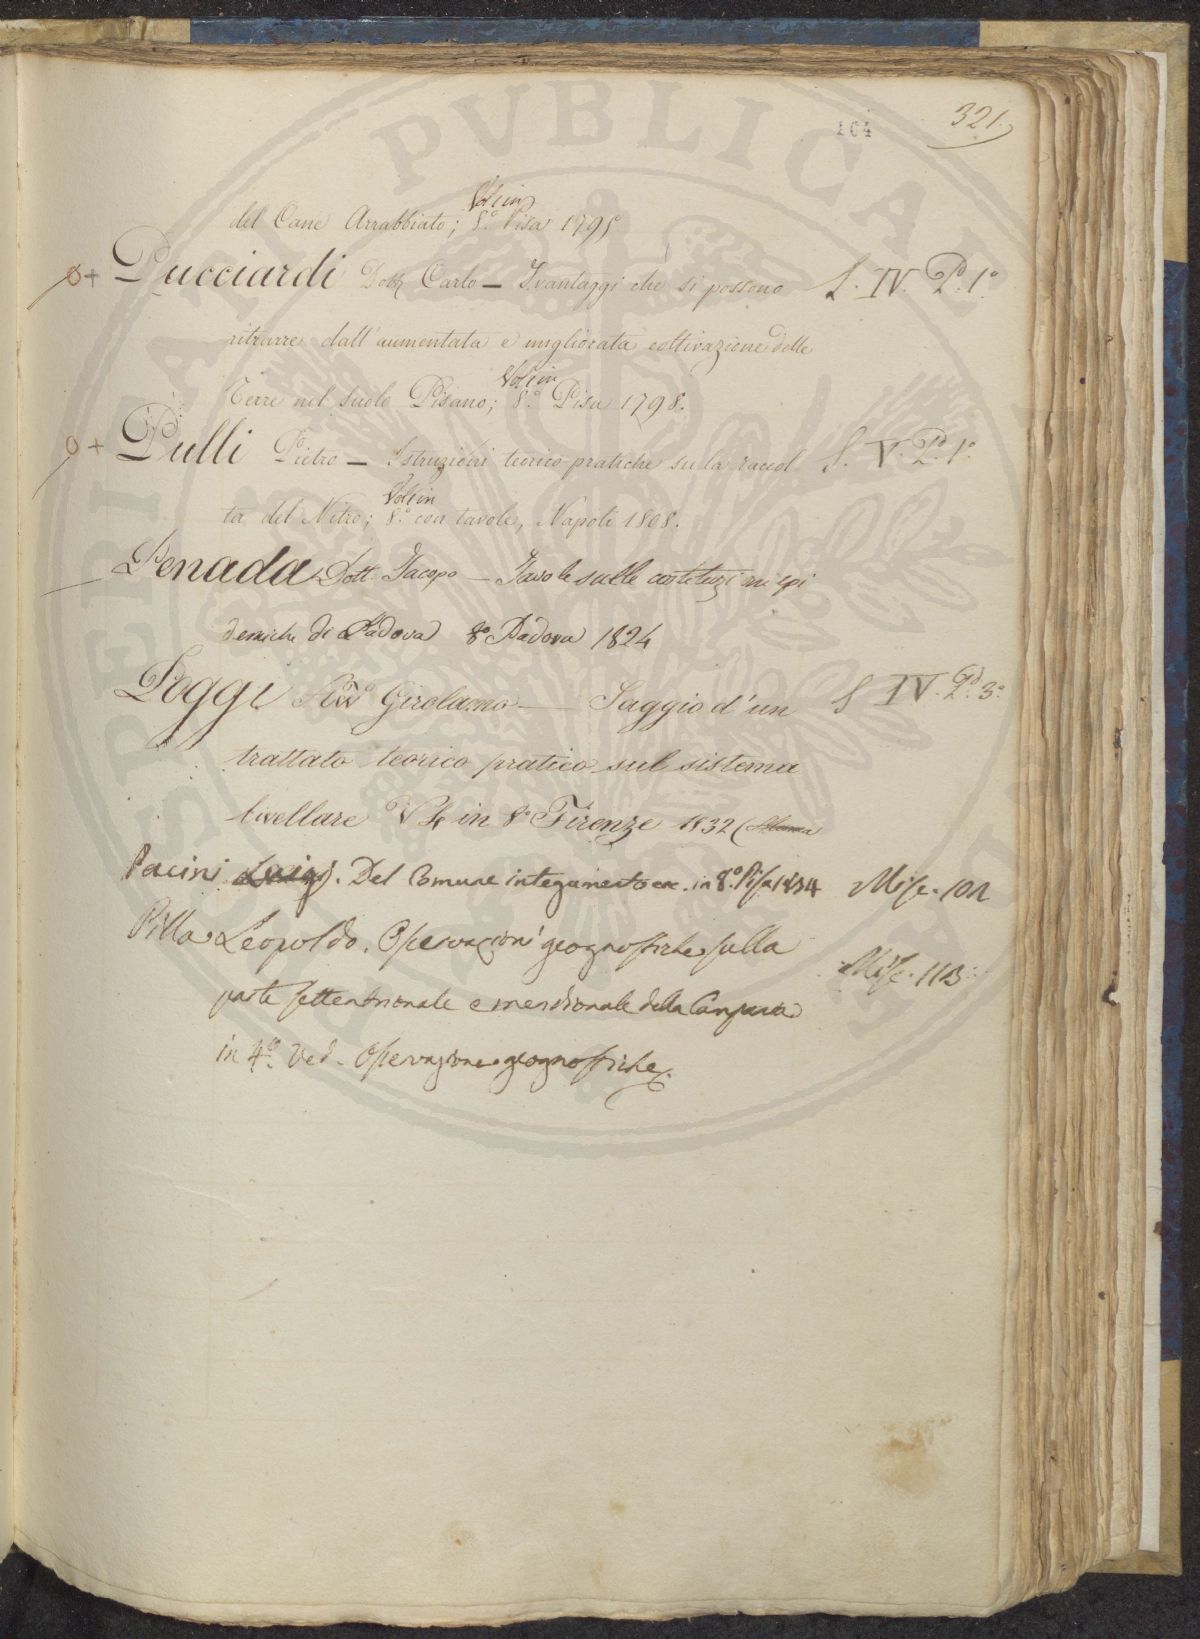 PVBLICAE
104
321.
Vol in
del Cane Arrabbiato; 8.° Pisa 1795.
Pucciardi Dott. Carlo — I vantaggi che si possono S. IV. P.° 1.°
ritrarre dall'aumentata e migliorata coltivazione delle
Vol in
Terre nel suolo Pisano; 8.° Pisa 1798.
Pulli Pietro — Istruzioni teorico-pratiche sulla raccol S. V. P.° 1.°
Vol in
ta del Nitro; 8.° con tavole, Napoli 1808.
Penada Dott. Jacopo — Tavole sulle costituzioni epi
demiche di Padova 8.° Padova 1824
Poggi Girolamo — Saggio d'un S IV. P.° 3.°
trattato teorico pratico sul sistema
livellare V 4 in 8.° Firenze 1832
Pacini Luigi. Del Comune integumento ec. in 8.° Pisa 1834 Misc. 101
Pilla Leopoldo. Osservazioni geognostiche sulla
Misc. 113.
parte settentrionale e meridionale della Campania
in 4.° Ved. Osservazione geognostiche.